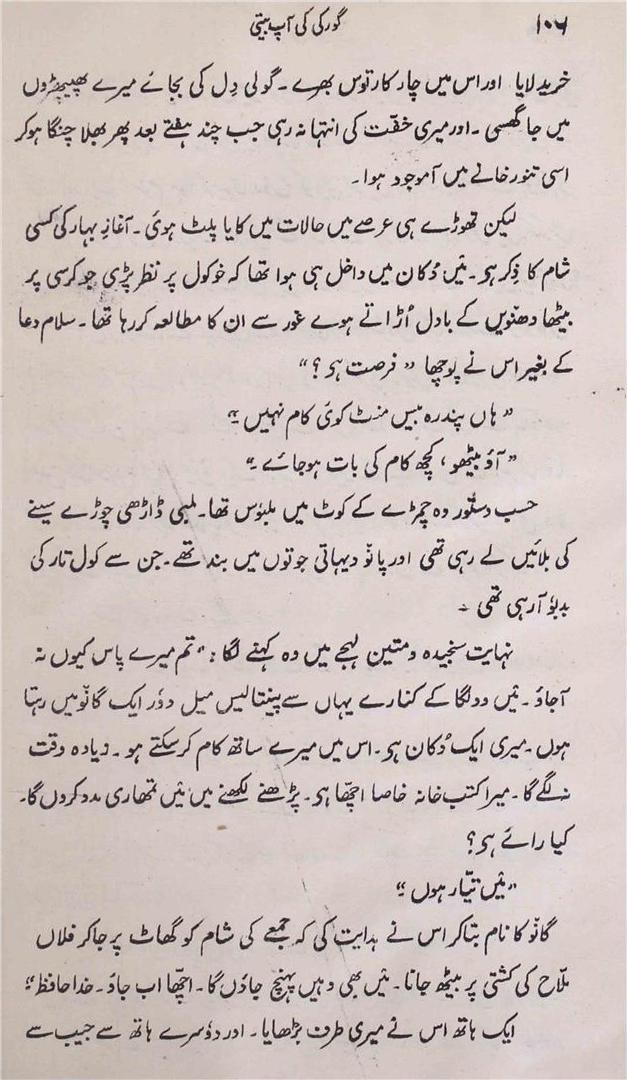 ۱۰۶
گورکی کی آپ بیتی
خرید لایا اور اس میں چار کارتوس بھرے۔ گولی دِل کی بجائے میرے پھیپھڑوں
میں جا گھسی۔ اور میری خفّت کی انتہا نہ رہی جب چند ہفتے بعد پھر بھلا چنگا ہوکر
اسی تنور خانے میں آموجود ہوا۔
لیکن تھوڑے ہی عرصے میں حالات میں کایا پلٹ ہوئی۔ آغازِ بہار کی کسی
شام کا ذِکر ہو۔ میَں دُکان میں داخل ہی ہوا تھا کہ خوکول پر نظر پڑی جو کرسی پر
بیٹھا دھنّویں کے بادل اُڑاتے ہوے غور سے ان کا مطالعہ کر رہا تھا۔ سلام دعا
کے بغیر اس نے پوچھا ”فرصت ہو؟“
”ہاں پندرہ بیس منٹ کوئی کام نہیں۔“
”آؤ بیٹھو، کچھ کام کی بات ہوجائے۔“
حسبِ دستوٗر وہ چمڑے کے کوٹ میں ملبوٗس تھا۔ لمبی ڈاڑھی چوڑے سینے
کی بلائیں لے رہی تھی اور پانوّ دیہاتی جوتوں میں بند تھے۔ جن سے کول تار کی
بدبوٗ آرہی تھی۔
نہایت سنجیدہ و متین لہجے میں وہ کہنے لگا: ”تم میرے پاس کیوں نہ
آجاؤ۔ میَں وولگا کے کنارے یہاں سے پینتالیس میل دوٗر ایک گانوّ میں رہتا
ہوں۔ میری ایک دُکان ہو۔ اس میں میرے ساتھ کام کرسکتے ہو۔ زیادہ وقت
نہ لگے گا۔ میرا کتب خانہ خاصا اچھّا ہو۔ پڑھنے لکھنے میں میَں تمھاری مدد کروں گا۔
کیا رائے ہو؟
”میَں تیّار ہوں۔“
گانوّ کا نام بتا کر اس نے ہدایت کی کہ جمعے کی شام کو گھاٹ پر جاکر فلاں
ملّاح کی کشتی پر بیٹھ جانا۔ میَں بھی وہیں پہنچ جاؤں گا۔ اچھّا اب جاؤ۔ خدا حافظ۔“
ایک ہاتھ اس نے میری طرف بڑھایا۔ اور دوٗسرے ہاتھ سے جیب سے